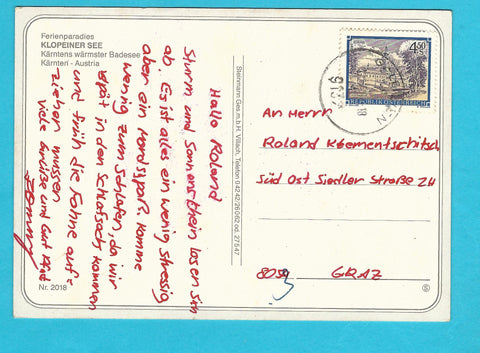 Ferienparadies
KLOPEINER SEE
Kärntens wärmster Badesee
Kärnten - Austria
Hallo Roland
Sturm und Sonnenschein lösen sich
ab. Es ist alles ein wenig stressig
aber ein Mordsspaß. Komme
wenig zum Schlafen, da wir
spät in den Schlafsack kommen
und früh die Fahne auf-
ziehen müssen
viele Grüße und Gut Pfad
Nr. 2018
Steinmann Ges.m.b.H. Villach, Telefon 04242/28062 od. 27547
4.50
REPUBLIK ÖSTERREICH
An Herrn
Roland
Süd Ost Siedler Straße 24
GRAZ